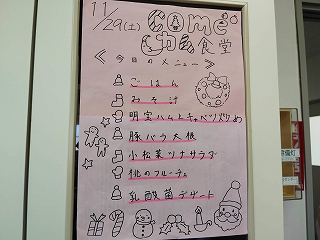 11/29(土) comeこめ食堂
≪今日のメニュー≫
ごはん
みそ汁
明宝ハムとキャベツ炒め
豚バラ大根
小松菜ツナサラダ
桃のフルーチェ
乳酸菌デザート